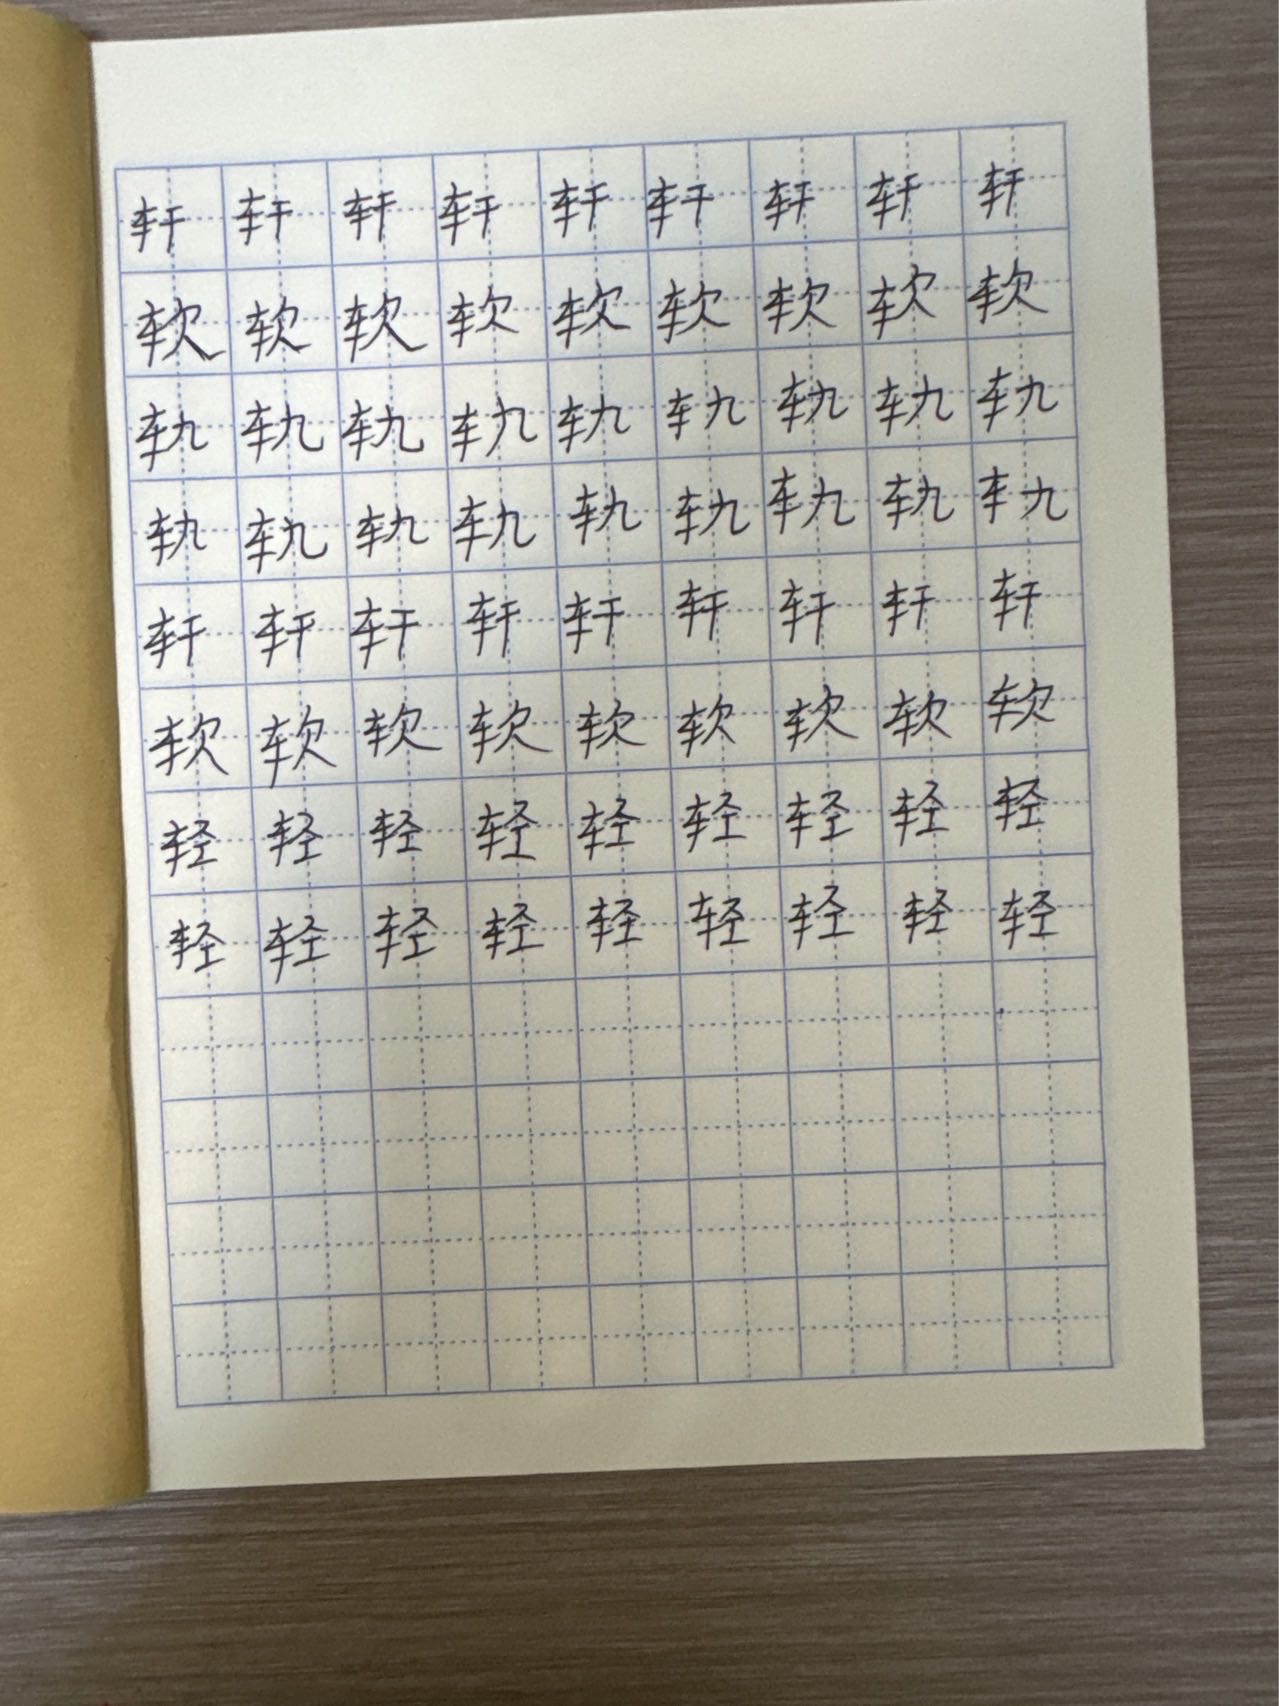 轩轩轩轩轩轩轩轩轩
软软软软软软软软软
轨轨轨轨轨轨轨轨轨
轨轨轨轨轨轨轨轨轨
轩轩轩轩轩轩轩轩轩
软软软软软软软软软
轻轻轻轻轻轻轻轻轻
轻轻轻轻轻轻轻轻轻